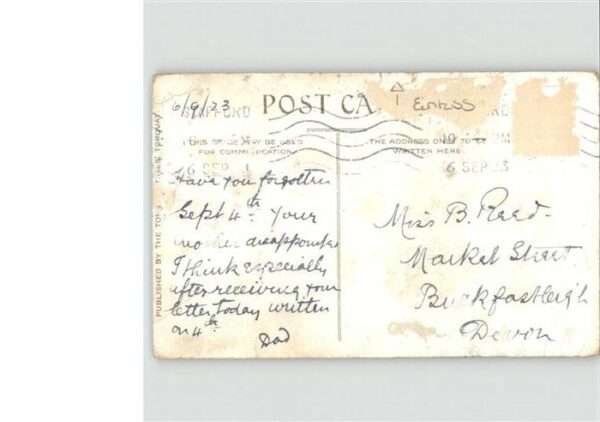 6/9/23
POST CA
Emboss
THIS SPACE MAY BE USED
FOR COMMUNICATION
THE ADDRESS ONLY TO
WRITTEN HERE
6 SEP
6 SEP 23
PUBLISHED BY THE
TORQUAY
Have you forgotten
Sept 4th Your
mother disappointed
I think especially
after receiving your
letter today written
on 4th
Dad
Miss B. Reed.
Market Street
Buckfastleigh
Devon